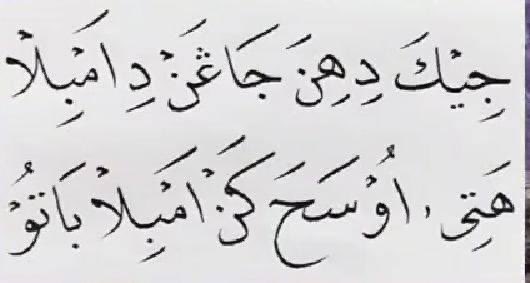 جِيْكَ دِهِنَ جَاڠَنْ دِامَبِلاْ
هَتِى، اُوْسَحَ كَنْ امَبِلاْ بَاتُوْ